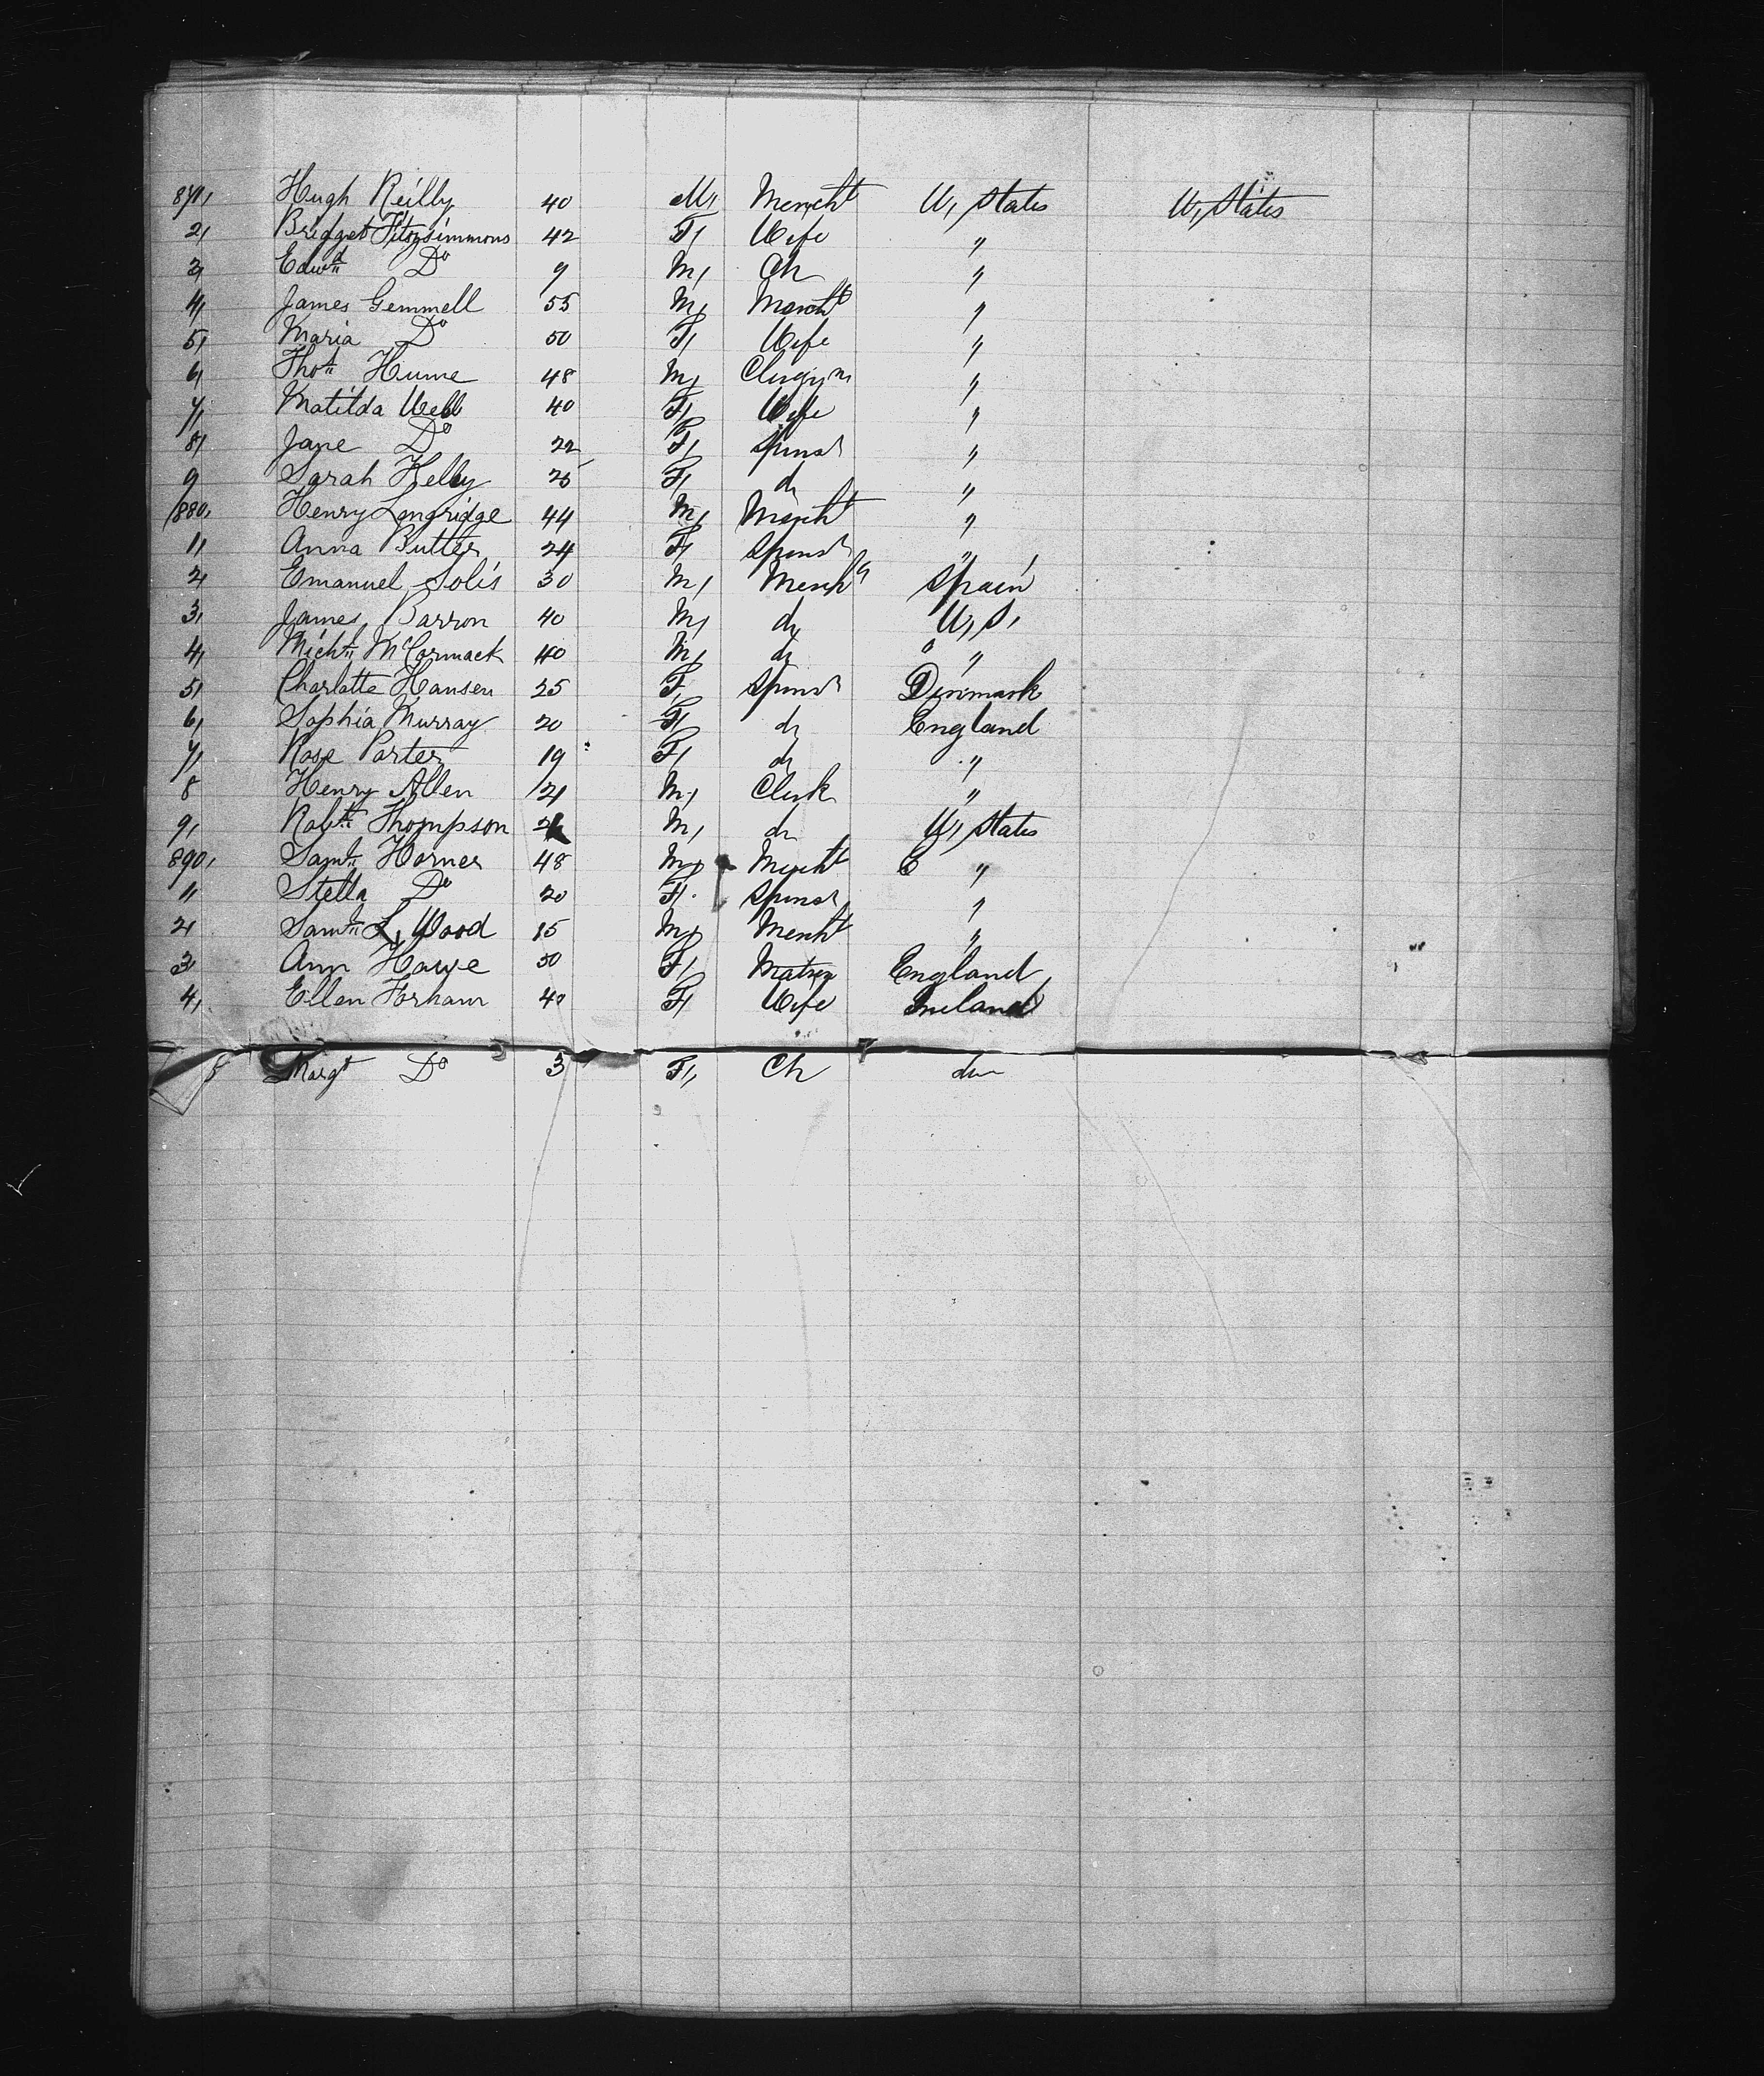 871, Hugh Reilly 40 M, Mercht U, States U, States
2, Bridget Fitzsimmons 42 F, Wife "
3, Edwd Do 9 M, Ch "
4, James Gemmell 55 M, Mercht "
5, Maria Do 50 F, Wife "
6, Thos Hume 48 M, Clergym "
7, Matilda Webb 40 F, Wife "
8, Jane Do 22 F, Spinsr "
9 Sarah Kelly 25 F, do "
880, Henry Longridge 44 M, Mercht "
1, Anna Butler 24 F, Spinsr "
2, Emanuel Solis 30 M, Mercht Spain
3, James Barron 40 M, do U, S,
4, Michl McCormack 40 M, do "
5, Charlotte Hansen 25 F, Spinsr Denmark
6, Sophia Murray 20 F, do England
7, Rose Porter 19 F, do "
8 Henry Allen 21 M, Clerk "
9, Robt Thompson M, do U, States
890, Saml Horner 48 M, Mercht "
1, Stella Do 20 F, Spinsr "
2, Saml L, Wood 15 M, Mercht "
3 Ann Howe 50 F, Matron England
4, Ellen 40 F, Wife Ireland
5 Margt Do 3 F, Ch do